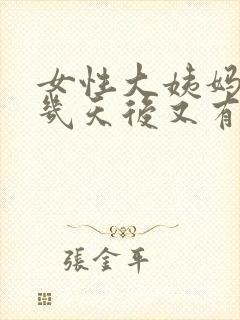 女性大姨妈
几天後又有
張金平